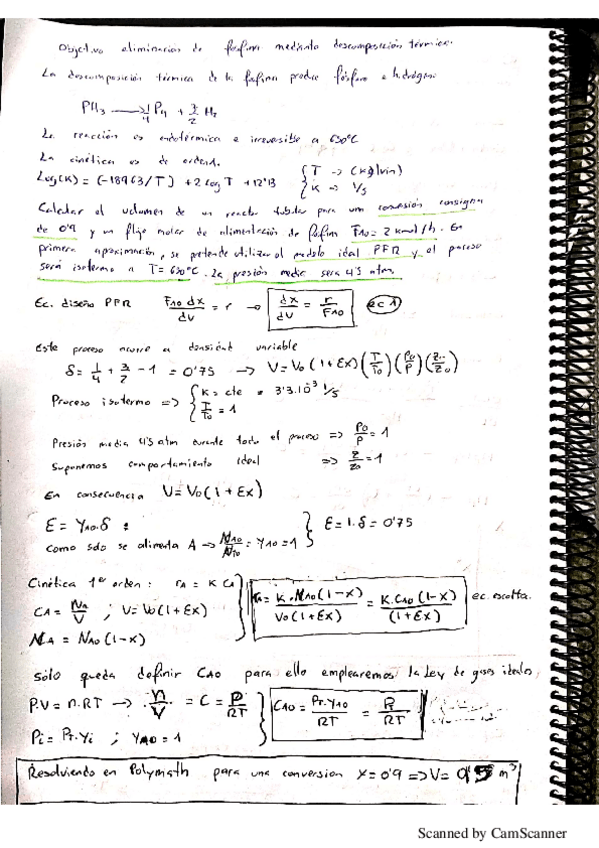 Objetivo eliminación de fosfina mediante descomposición térmica.
La descomposición térmica de la fosfina produce fósforo e hidrógeno
PH₃ → 1/4 P₄ + 3/2 H₂
La reacción es endotérmica e irreversible a 650°C
La cinética es de orden 1.
Log(K) = (-18963/T) + 2 log T + 12'13 { T → (Kelvin) K → 1/s
Calcular el volumen de un reactor tubular para una conversión consigna
de 0'9 y un flujo molar de alimentación de fosfina FA0 = 2 kmol/h. En
primera aproximación, se pretende utilizar el modelo ideal PFR y el proceso
será isotermo a T = 650°C. La presión media será 4'5 atm.
Ec. diseño PFR FA0 dx/dV = r → dx/dV = r/FA0 ec 1
Este proceso ocurre a densidad variable
δ = 1/4 + 3/2 - 1 = 0'75 → V = V0 (1 + Ex) (T/T0) (P0/P) (Z/Z0)
Proceso isotermo => { K = cte = 3'3.10³ 1/s T/T0 = 1
Presión media 4'5 atm durante todo el proceso => P0/P = 1
Suponemos comportamiento ideal => Z/Z0 = 1
En consecuencia V = V0 (1 + Ex)
E = YA0.δ :
como solo se alimenta A → NA0/NT0 = YA0 = 1 } E = 1.δ = 0'75
Cinética 1er orden : rA = K CA
CA = NA/V ; V = V0 (1 + Ex) } rA = K.NA0 (1-x) / V0 (1 + Ex) = K.CA0 (1-x) / (1 + Ex) ec.
NA = NA0 (1-x)
solo queda definir CA0 para ello emplearemos la Ley de gases ideales,
P.V = n.RT → n/V = C = P/RT } CA0 = PT.YA0/RT = P/RT
Pi = PT.Yi ; YA0 = 1
Resolviendo en Polymath para una conversion x = 0'9 => V = m³
Scanned by CamScanner